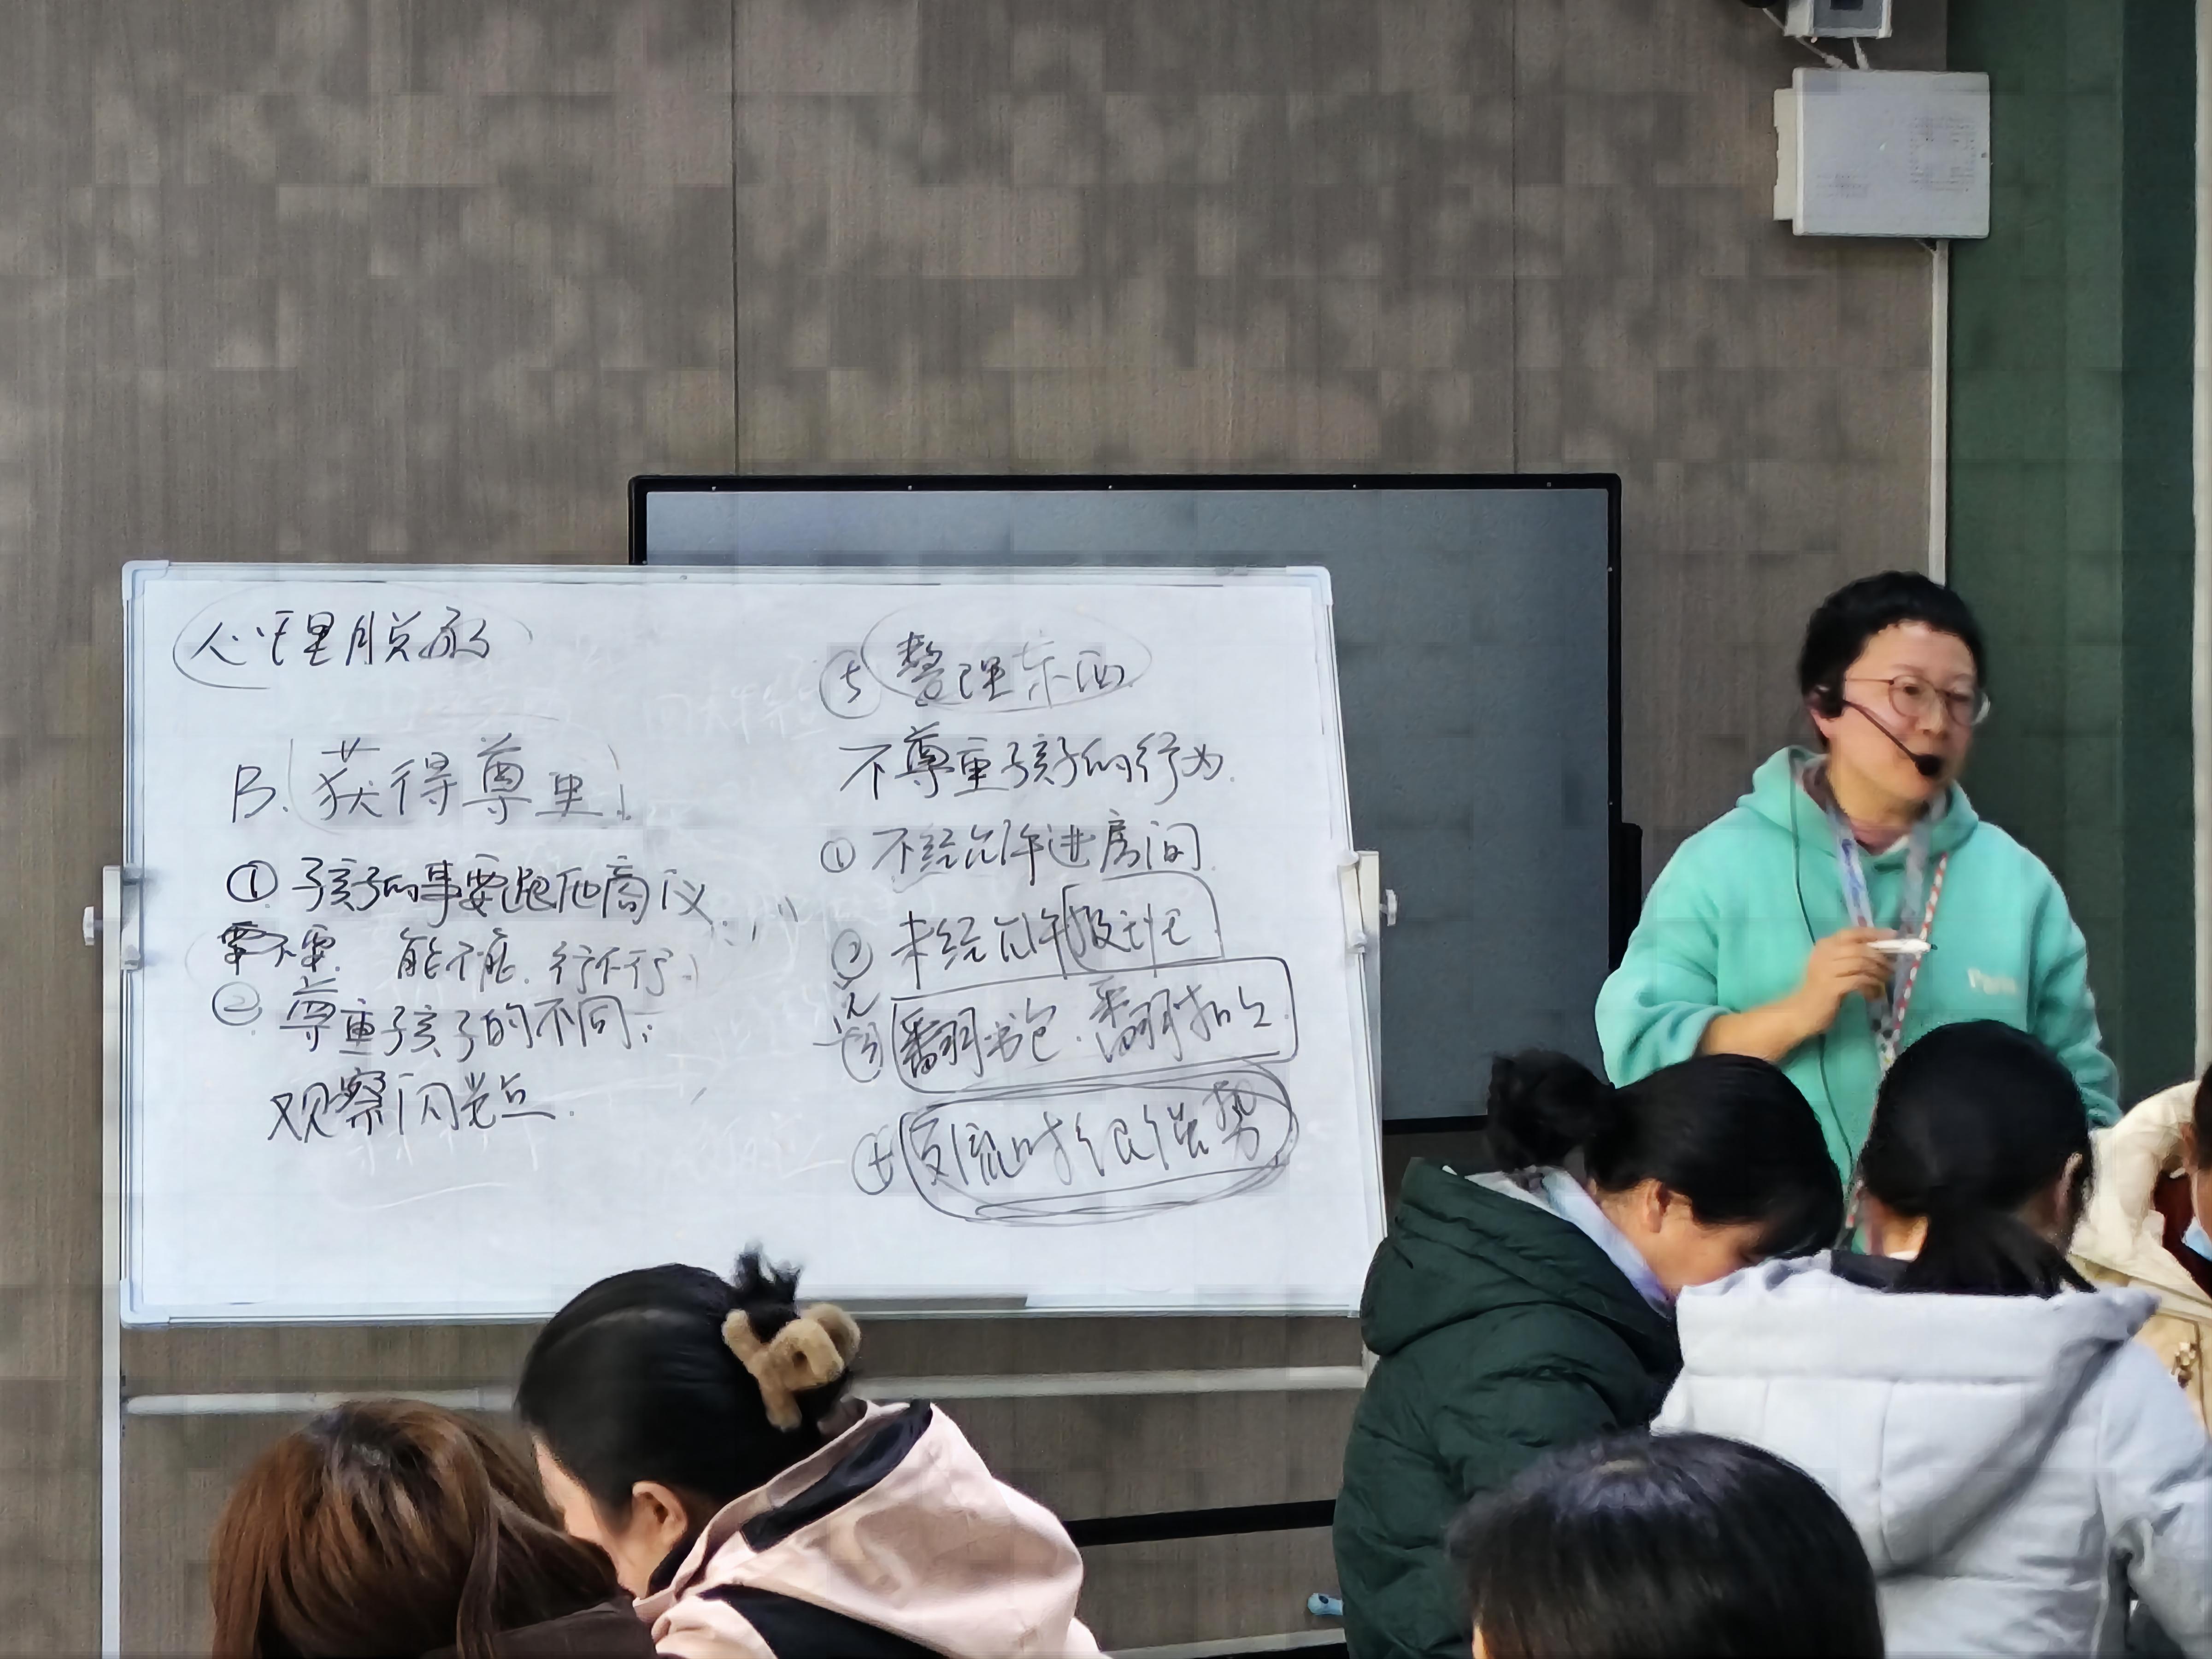 心理脱敏
B. 获得尊重
① 孩子的事要跟他商议
要不要 能不能 行不行
② 尊重孩子的不同;
观察闪光点.
⑤ 整理东西
不尊重孩子的行为.
① 不经允许进房间
② 未经允许报班
③ 翻书包.翻书
④ 反馈时很强势